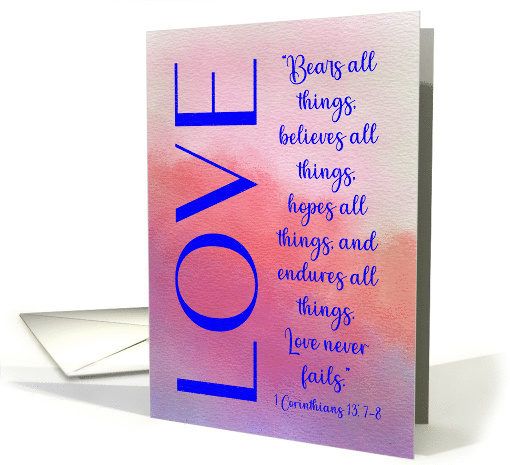 LOVE
“Bears all
things,
believes all
things,
hopes all
things, and
endures all
things.
Love never
fails.”
1 Corinthians 13: 7-8